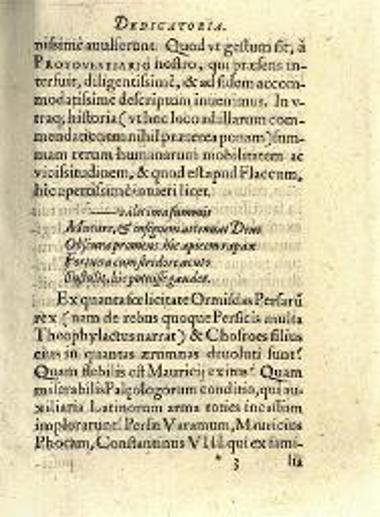 DEDICATORIA.
nissimè auulserunt. Quod vt gestum sit, à
PROTOVESTIARIO nostro, qui præsens in-
terfuit, diligentissimè, & ad fidem accom-
modatissimè descriptum inuenimus. In v-
traq; historia (vt hoc loco ad illarum com-
mendationem nihil præterea ponam) sum-
mam rerum humanarum mobilitatem ac
vicissitudinem, & quod est apud Flaccum,
hic apertissimè intueri licet,
valet ima summis
Mutare, & insignem attenuat Deus
Obscura promens. hic apicem rapax
Fortuna cum stridore acuto
Sustulit, hic posuisse gaudet.
Ex quanta fœlicitate Ormisdas Persarũ
rex (nam de rebus quoque Persicis multa
Theophylactus narrat) & Chosroes filius
eius in quantas ærumnas deuoluti sunt?
Quam flebilis est Mauricij exitus? Quam
miserabilis Palęologorum conditio, qui au-
xiliaria Latinorum arma toties incassum
implorarunt? Persæ Varamum, Mauricius
Phocam, Constantinus VIII. qui ex fami-
* 3 lia